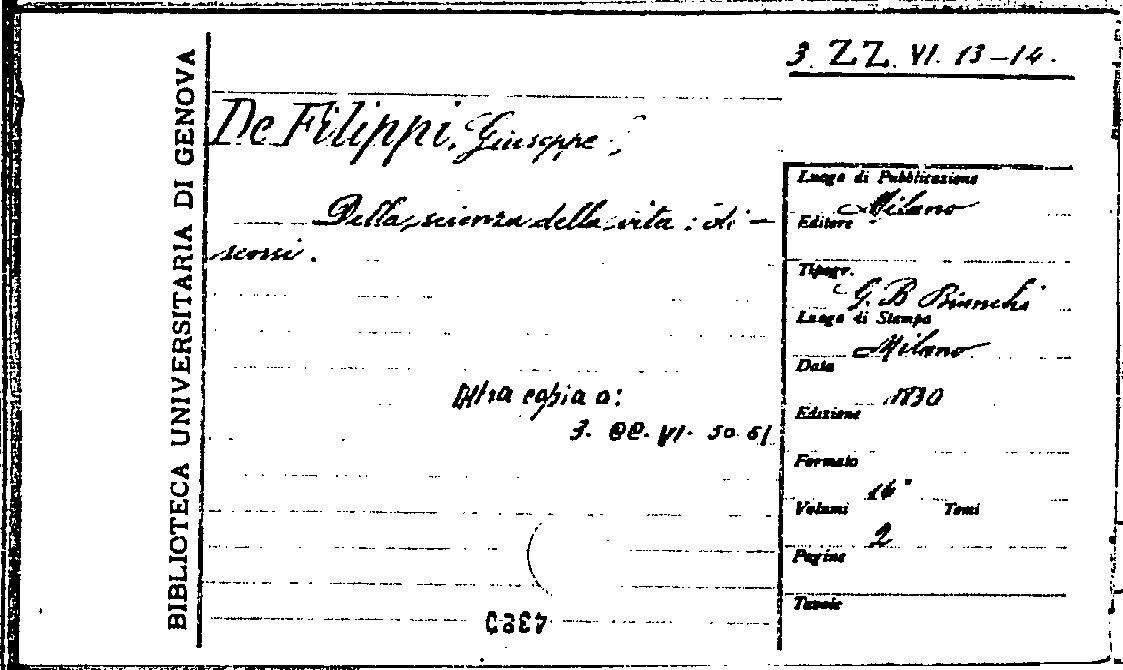 3. ZZ. VI. 13-14.
BIBLIOTECA UNIVERSITARIA DI GENOVA
De Filippi, Giuseppe;
Della scienza della vita: di-
scorsi.
Altra copia a:
Luogo di Pubblicazione
Milano
Editore
Tipogr.
G. B Bianchi
Luogo di Stampa
Milano
Data
1830
Edizione
Formato
16°
Volumi Tomi
2
Pagine
Tavole